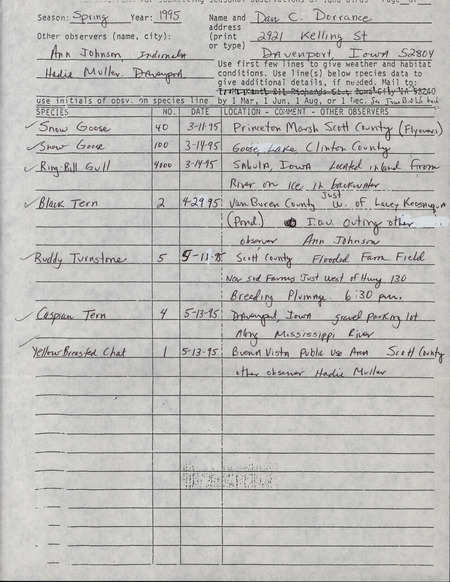 Season: Spring Year: 1995 Name and Dan C. Dorrance
Other observers (name, city): address 2921 Kelling St
(print
Ann Johnson, Indianola or type) Davenport, Iowa 52804
Hadie Muller, Davenport Use first few lines to give weather and habitat
conditions. Use line(s) below species data to
give additional details, if needed. Mail to:
use initials of obsv. on species line by 1 Mar, 1 Jun, 1 Aug, or 1 Dec.
SPECIES NO. DATE LOCATION - COMMENT - OTHER OBSERVERS
Snow Goose 40 3-11-95 Princeton Marsh Scott County (Flyovers)
Snow Goose 100 3-14-95 Goose Lake Clinton County
Ring-Bill Gull 4000 3-14-95 Sabula, Iowa Located inland from
River on ice in backwater
Black Tern 2 4-29-95 Van Buren County Just W. of Lacey Keosauqua
(Pond) I.O.U. Outing other
observer Ann Johnson
Ruddy Turnstone 5 5-11-95 Scott County Flooded Farm Field
Near Sod Farms Just West of Hwy 130
Breeding Plumage. 6:30 p.m.
Caspian Tern 4 5-13-95 Davenport, Iowa gravel parking lot
Along Mississippi River
Yellow Breasted Chat 1 5-13-95 Buena Vista Public Use Area Scott County
other observer Hadie Muller